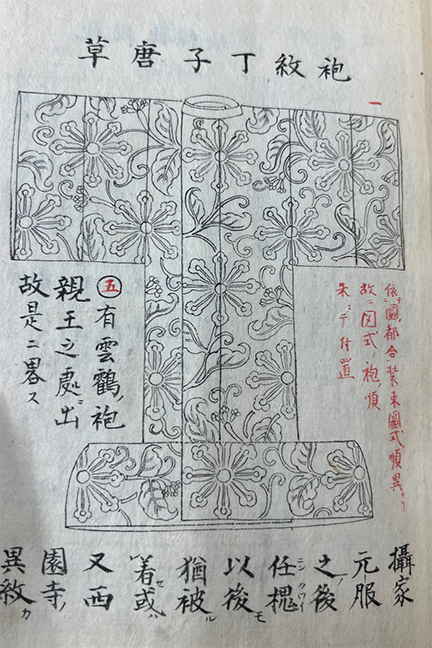 袍紋丁子唐草
一
依圖都合装束圖式順異ナリ
故ニ図式ノ袍順
朱ニテ付置
㊄有雲鶴ノ袍
親王之處ニ出
故是ニ畧ス
攝家
元服
之ノ後
任槐ニンクワイ
以後モ
猶被ル
着セ或ハ
又西
園寺ノ
異紋カ